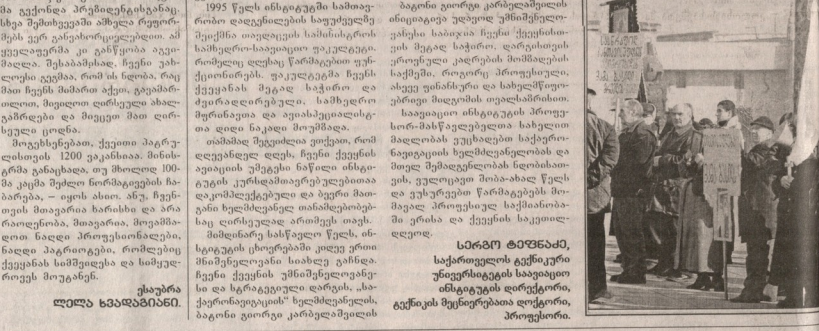 მა გვქონდა პრეზიდენტისგანაც.
სხვა შემთხვევაში ამხელა რეფორ-
მებს ვერ განვახორციელებდით. ამ
ყველაფერმა კი განწყობა აგვი-
მაღლა. შესაბამისად, ჩვენი უახ-
ლოესი გეგმაა, რომ ის ნდობა, რაც
მათ ჩვენს მიმართ აქვთ, გავამარ-
თლოთ, მივიღოთ ღირსეული ახალ-
გაზრდები და მივცეთ მათ ღირ-
სეული ცოდნა.
მოგეხსენებათ, ქვეითი პატრუ-
ლისთვის 1200 ვაკანსიაა. მინის-
ტრმა განაცხადა, თუ მხოლოდ 100-
მა კაცმა შეძლო ნორმატივების ჩა-
ბარება, – იყოს ასიო. ანუ, ჩვენ-
თვის მთავარია ხარისხი და არა
რაოდენობა. მთავარია, მოვამზა-
დოთ ნაღდი პროფესიონალები,
ნაღდი პატრიოტები, რომლებიც
ქვეყანას სიმშვიდესა და სიმყუდ-
როვეს მოუტანენ.
ესაუბრა
ლელა ხვადაგიანი.
1995 წელს ინსტიტუტში სამთავ-
რობო დადგენილების საფუძველზე
შეიქმნა თავდაცვის სამინისტროს
სამხედრო-საავიაციო ფაკულტეტი,
რომელიც დღესაც წარმატებით ფუნ-
ქციონირებს. ფაკულტეტმა ჩვენს
ქვეყანას მეტად საჭირო და
ძვირადღირებული, სამხედრო
მფრინავთა და ავიასპეციალისტ-
თა დიდი ნაკადი მოუმზადა.
თამამად შეგვიძლია ვთქვათ, რომ
დღევანდელ დღეს, ჩვენი ქვეყნის
ავიაციის უმეტესი ნაწილი ინსტი-
ტუტის კურსდამთავრებულებითაა
დაკომპლექტებული და ბევრი მათ-
განი ხელმძღვანელ თანამდებობებ-
საც ღირსეულად ართმევს თავს.
მიმდინარე სასწავლო წელს, ინ-
სტიტუტის ცხოვრებაში კიდევ ერთი
მნიშვნელოვანი სიახლე გაჩნდა.
ჩვენი ქვეყნის უმნიშვნელოვანე-
სი და სტრატეგიული დარგის, „სა-
ქაერონავიგაციის“ ხელმძღვანელის,
ბატონი გიორგი კარბელაშვილის
ბატონი გიორგი კარბელაშვილის
ინიციატივა უდავოდ უმნიშვნელო-
ვანესი საბიჯია ჩვენი ქვეყნისთ-
ვის მეტად საჭირო, დარგისთვის
ეროვნული კადრების მომზადების
საქმეში, როგორც პროფესიული,
ასევე ფინანსური და სახელმწიფო-
ებრივი მიდგომის თვალსაზრისით.
საავიაციო ინსტიტუტის პროფე-
სორ-მასწავლებელთა სახელით
მადლობას ვუცხადებთ საქაერო-
ნავიგაციის ხელმძღვანელობას და
მთელ შემადგენლობას ნდობისათ-
ვის, ვულოცავთ შობა-ახალ წელს
და ვუსურვებთ წარმატებებს მო-
მავალ პროფესიულ საქმიანობა-
ში ერისა და ქვეყნის საკეთილ-
დღეოდ.
სერგო ტეფნაძე,
საქართველოს ტექნიკური
უნივერსიტეტის საავიაციო
ინსტიტუტის დირექტორი,
ტექნიკის მეცნიერებათა დოქტორი,
პროფესორი.